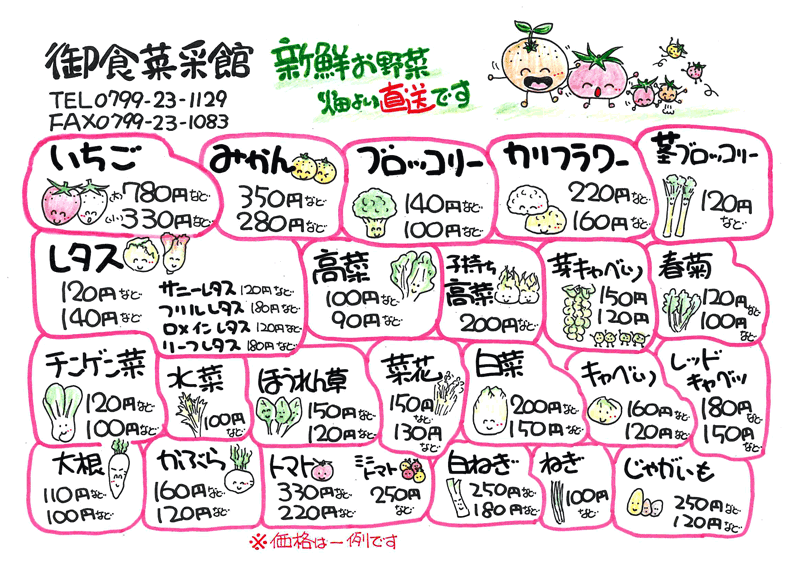 御食菜采館
新鮮お野菜
畑より直送です
TEL0799-23-1129
FAX0799-23-1083
いちご
(大)780円など
(小)330円など
みかん
350円など
280円など
ブロッコリー
140円など
100円など
カリフラワー
220円など
160円など
茎ブロッコリー
120円
など
レタス
120円など
140円など
サニーレタス 120円など
フリルレタス 180円など
ロメインレタス 120円など
リーフレタス 180円など
高菜
100円など
90円など
子持ち
高菜
200円など
芽キャベツ
150円
120円
など
春菊
120円
100円など
チンゲン菜
120円など
100円など
水菜
100円
など
ほうれん草
150円など
120円など
菜花
150円
など
130円
など
白菜
200円など
150円など
キャベツ
160円など
120円など
レッド
キャベツ
180円
など
150円
など
大根
110円など
100円など
かぶら
160円など
120円など
トマト
330円など
220円など
ミニ
トマト
250円
など
白ねぎ
250円など
180円など
ねぎ
100円
など
じゃがいも
250円など
120円など
※価格は一例です